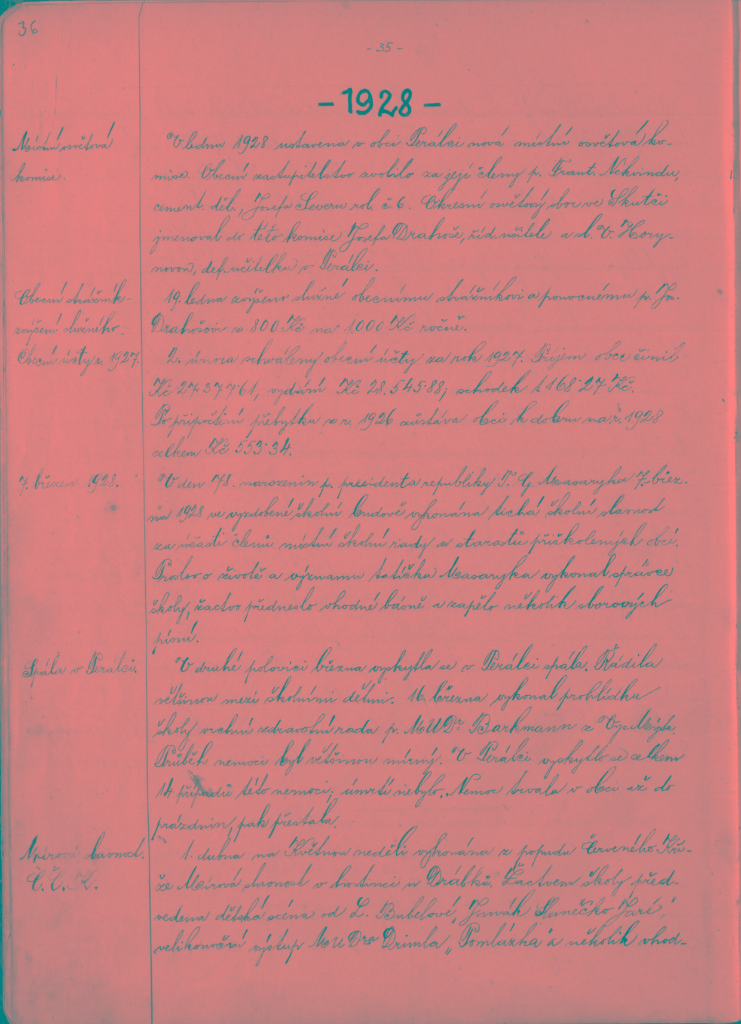 36
- 35 -
- 1928 -
Místní osvětová
komise.
V lednu 1928 ustavena v obci Perálci nová místní osvětová ko-
mise. Obecní zastupitelstvo zvolilo za její členy p. Frant. Nekvindu,
cement. děl., Josefa Severu rol. č. 6. Okresní osvětový sbor ve Skutči
jmenoval do této komise Josefa Drahoše, říd. učitele a sl. V. Hory-
novou, def. učitelku v Perálci.
Obecní strážník
zvýšení služného.
19. ledna zvýšeno služné obecnímu strážníkovi a ponocnému p. Jos.
Drahošovi z 800 Kč na 1.000 Kč ročně.
Obecní účty z r. 1927.
2. února schváleny obecní účty za rok 1927. Příjem obce činil
Kč 27.377·61, vydání Kč 28.545·88, schodek 1.168·27 Kč.
Po připočtení přebytku z r. 1926 zůstává obci k dobru na r. 1928
celkem Kč 553·34.
7. březen 1928.
V den 78. narozenin p. presidenta republiky T. G. Masaryka 7. břez-
na 1928 ve vyzdobené školní budově vykonána tichá školní slavnost
za účasti členů místní školní rady a starostů přiškolených obcí.
Proslov o životě a významu tatíčka Masaryka vykonal správce
školy, žactvo předneslo vhodné básně a zapělo několik sborových
písní.
Spála v Perálci.
V druhé polovici března vyskytla se v Perálci spála. Řádila
většinou mezi školními dětmi. 16. března vykonal prohlídku
školy vrchní zdravotní rada p. MUDr. Barkmann z Vys. Mýta.
Průběh nemoci byl většinou mírný. V Perálci vyskytlo se celkem
14 případů této nemoci; úmrtí nebylo. Nemoc trvala v obci až do
prázdnin, pak přestala.
Mírová slavnost
Č. Č. K.
1. dubna na Květnou neděli vykonána z popudu Červeného Kří-
že Mírová slavnost v hostinci u Drábků. Žactvem školy před-
vedena dětská scéna od L. Bubelové, "Junák Sluníčko Jaré",
velikonoční výstup MUDra Drimla "Pomlázka" a několik vhod-